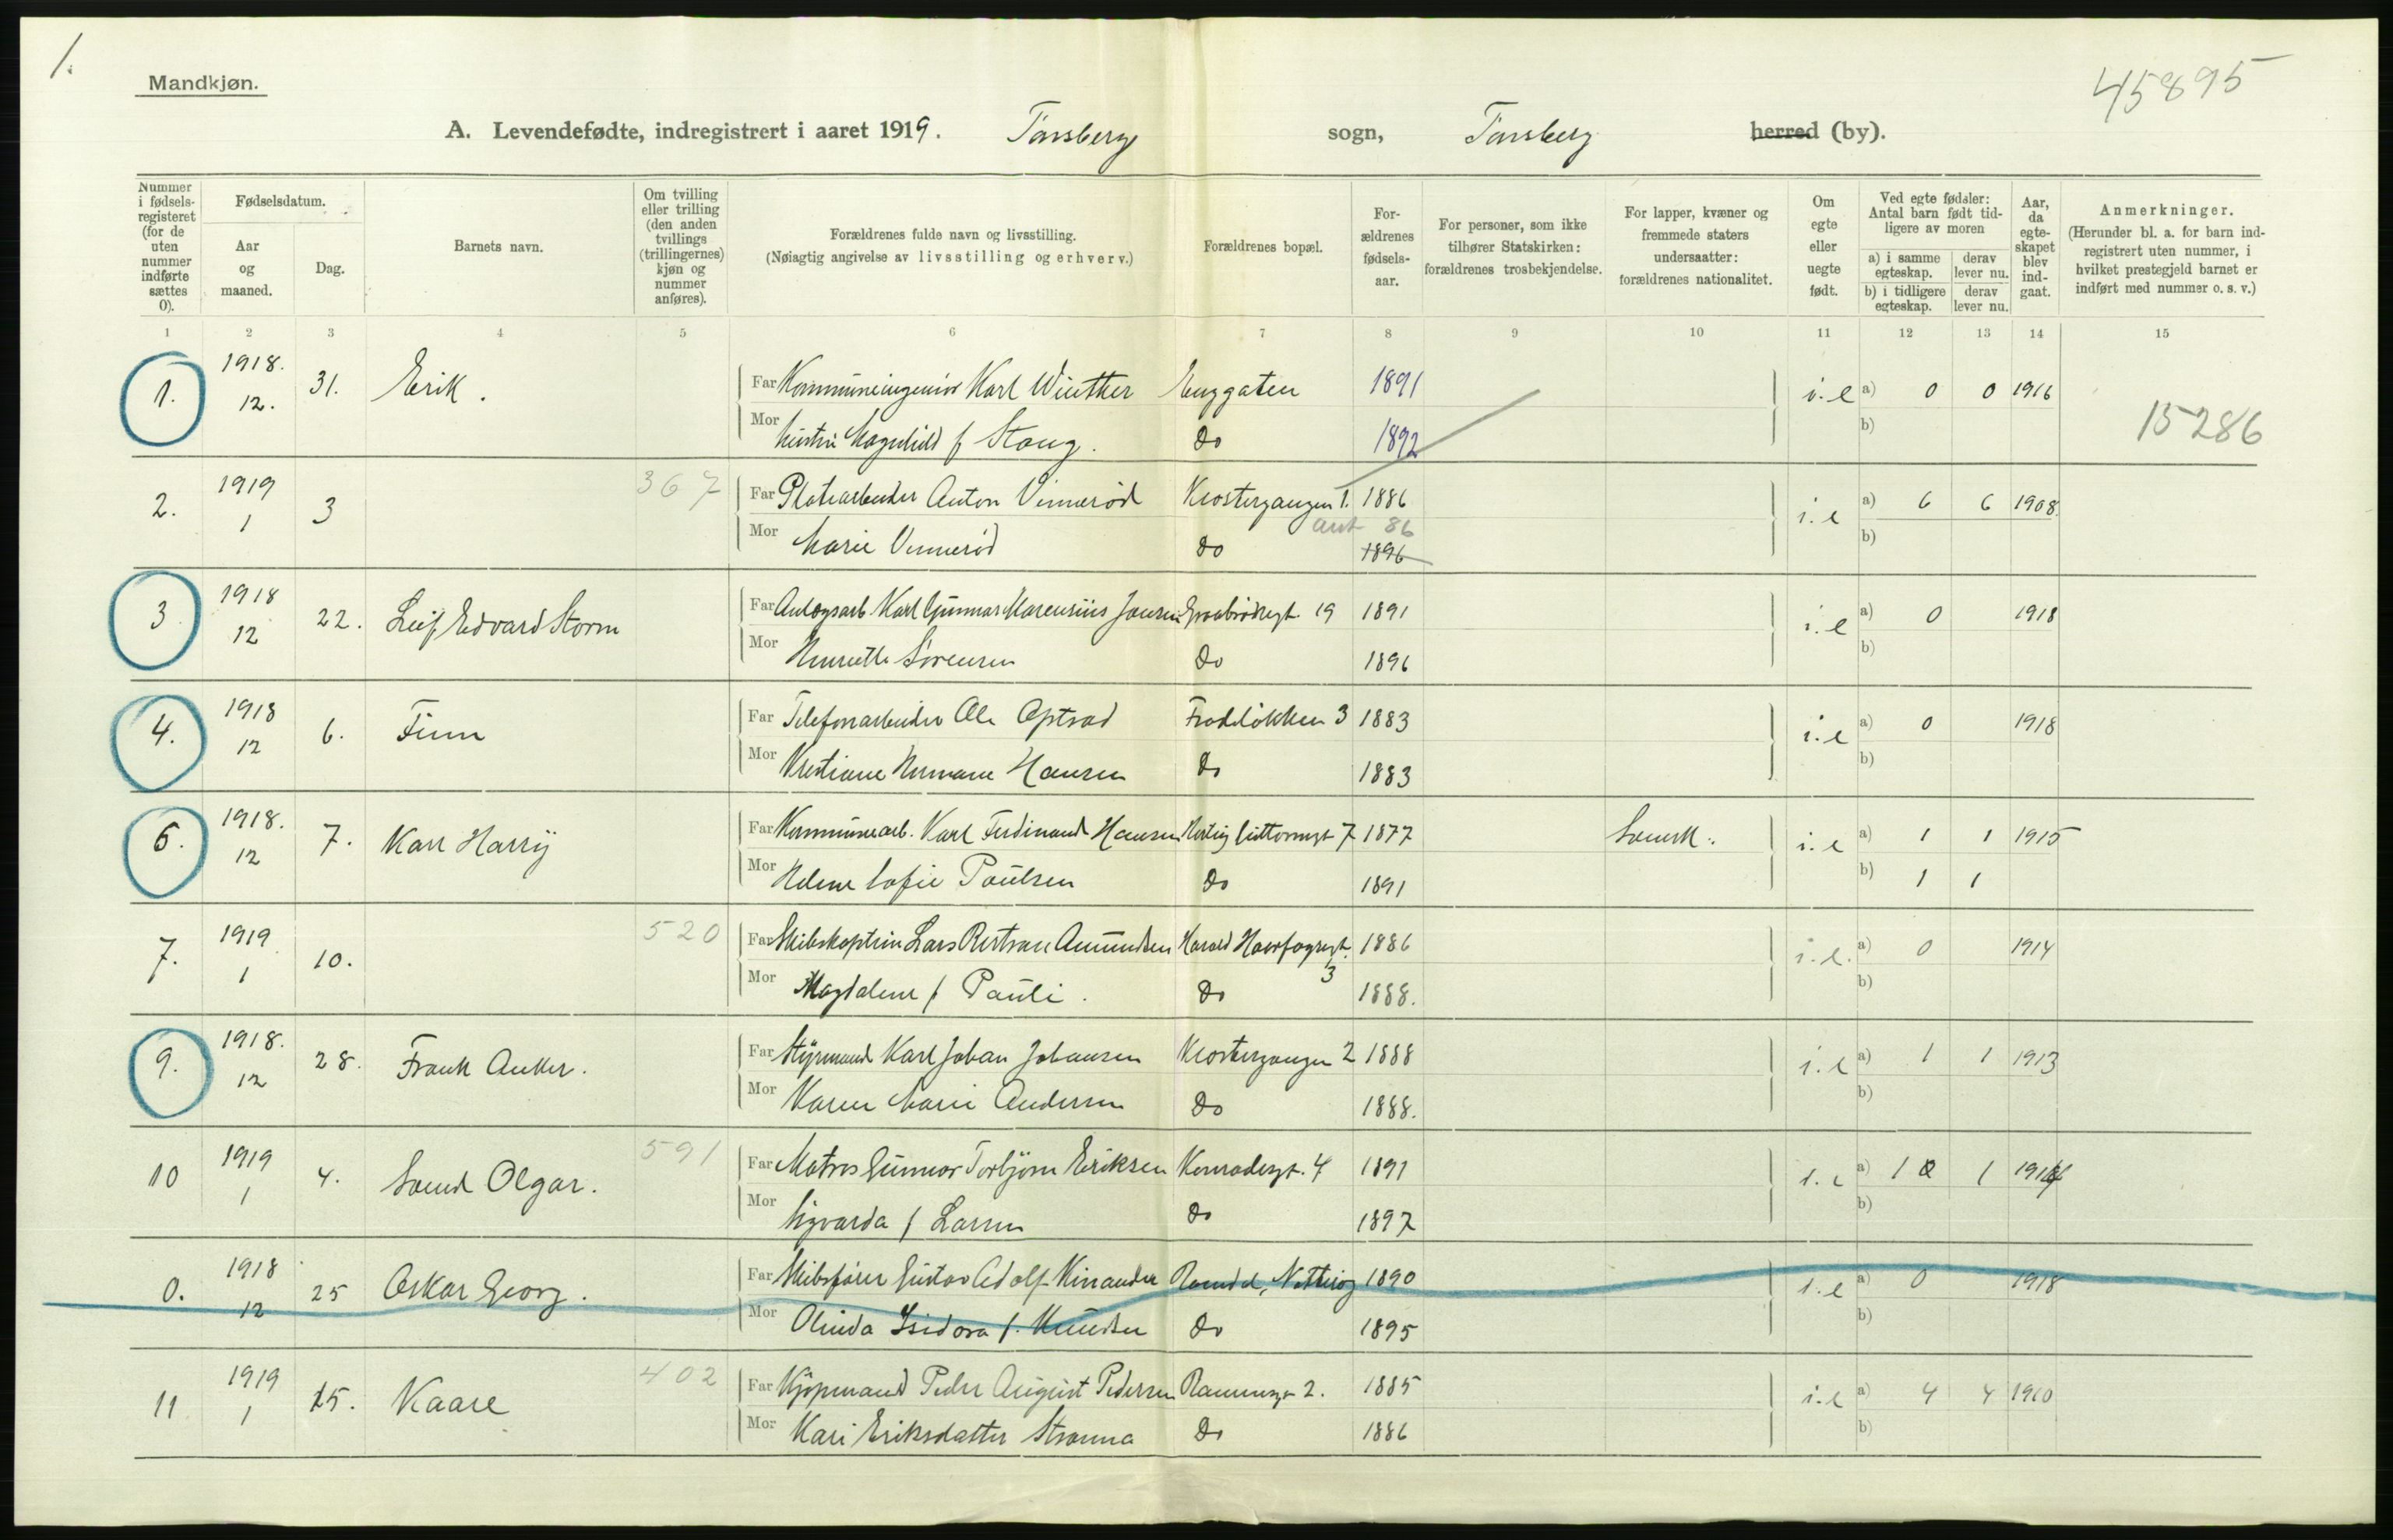 1.
Mandkjøn.
45895
A. Levendefødte, indregistrert i aaret 1919. Tønsberg sogn, Tønsberg herred (by).
Nummer i fødsels-registeret (for de uten nummer indførte sættes 0).
Fødselsdatum.
Aar og maaned.
Dag.
Barnets navn.
Om tvilling eller trilling (den anden tvillings (trillingernes) kjøn og nummer anføres).
Forældrenes fulde navn og livsstilling.
(Nøiagtig angivelse av livsstilling og erhverv.)
Forældrenes bopæl.
For-ældrenes fødsels-aar.
For personer, som ikke tilhører Statskirken: forældrenes trosbekjendelse.
For lapper, kvæner og fremmede staters undersaatter: forældrenes nationalitet.
Om egte eller uegte født.
Ved egte fødsler: Antal barn født tid-ligere av moren
a) i samme egteskap. derav lever nu.
b) i tidligere egteskap. derav lever nu.
Aar, da egte-skapet blev ind-gaat.
Anmerkninger.
(Herunder bl. a. for barn ind-registrert uten nummer, i hvilket prestegjeld barnet er indført med nummer o. s. v.)
1 2 3 4 5 6 7 8 9 10 11 12 13 14 15
1. 1918. 12. 31. Erik. Far Kommuneingeniør Karl Winther Enggaten 1891 i.e a) 0 0 1916
Mor hustru Magnhild f Stang. do 1892 b) 15286
2. 1919 1 3 367 Far Platearbeider Anton Vinnerød Klostergangen 1. 1886 i.e a) 6 6 1908.
ant 86
Mor Marie Vinnerød do 1896 b)
3 1918 12 22. Leif Edvard Storm Far Anlægsarb. Karl Gunnar Marensius Jansen Graabrødregt. 19 1891 i.e a) 0 1918
Mor Henriette Sørensen do 1896 b)
4. 1918 12 6. Finn Far Telefonarbeider Ole Optrød Frodeløkken 3 1883 i.e a) 0 1918
Mor Kristiane Hermane Hansen do 1883 b)
6. 1918. 12 7. Karl Harry Far Kommunearb. Karl Ferdinand Hansen Hertug Guttormsgt 7 1877 Svensk. i.e a) 1 1 1915
Mor Helene Sofie Paulsen do 1891 b) 1 1
7. 1919 1 10. 520 Far Skibskaptein Lars Bertran Amundsen Harald Haarfagresgt. 3 1886 i.e. a) 0 1914
Mor Magdalene f Pauli. do 1888. b)
9. 1918. 12 28. Frank Anker. Far Styrmand Karl Johan Johansen Klostergangen 2 1888 i.e a) 1 1 1913
Mor Karen Marie Andersen do 1888. b)
10 1919 1 4. Svend Olgar. 591 Far Matros Gunnar Torbjørn Eriksen Konradisgt. 4 1891 i.e a) 1 0 1 1916
Mor Sigvarda f Larsen do 1897 b)
0. 1918 12 25 Oskar Georg. Far Skibsfører Gustav Adolf Kinander Ramdal, Nøtterøy 1890 i.e a) 0 1918
Mor Olinda Isidora f. Knudsen do 1895 b)
11 1919 1 15. Kaare 402 Far Kjøpmand Peder August Pedersen Rammegt 2. 1885 i.e a) 4 4 1910
Mor Kari Eriksdatter Stranna do 1886 b)